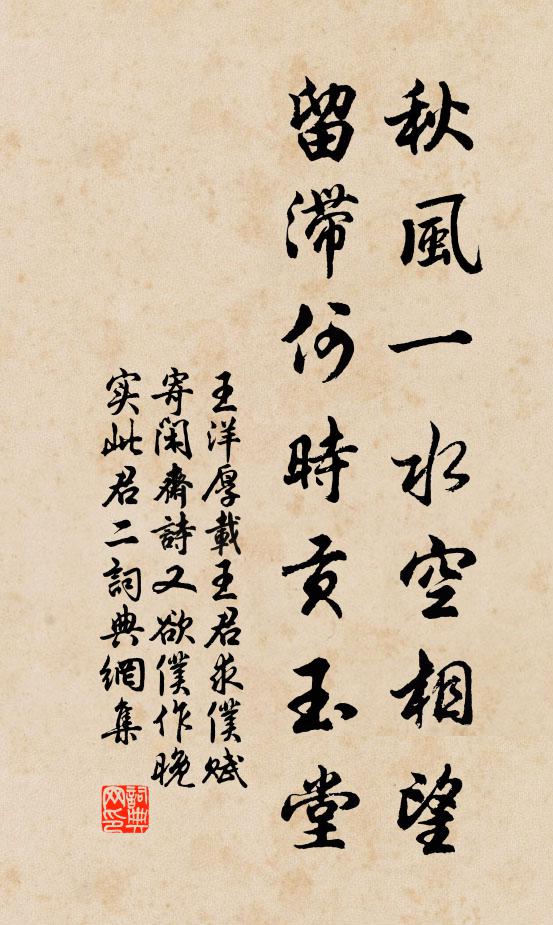 秋風一水空相望
留滯何時貢玉堂
王洋厚載王君求僕賦
寄閑齋詩又欲僕作晚
实此君二詞典網集
詞典網印